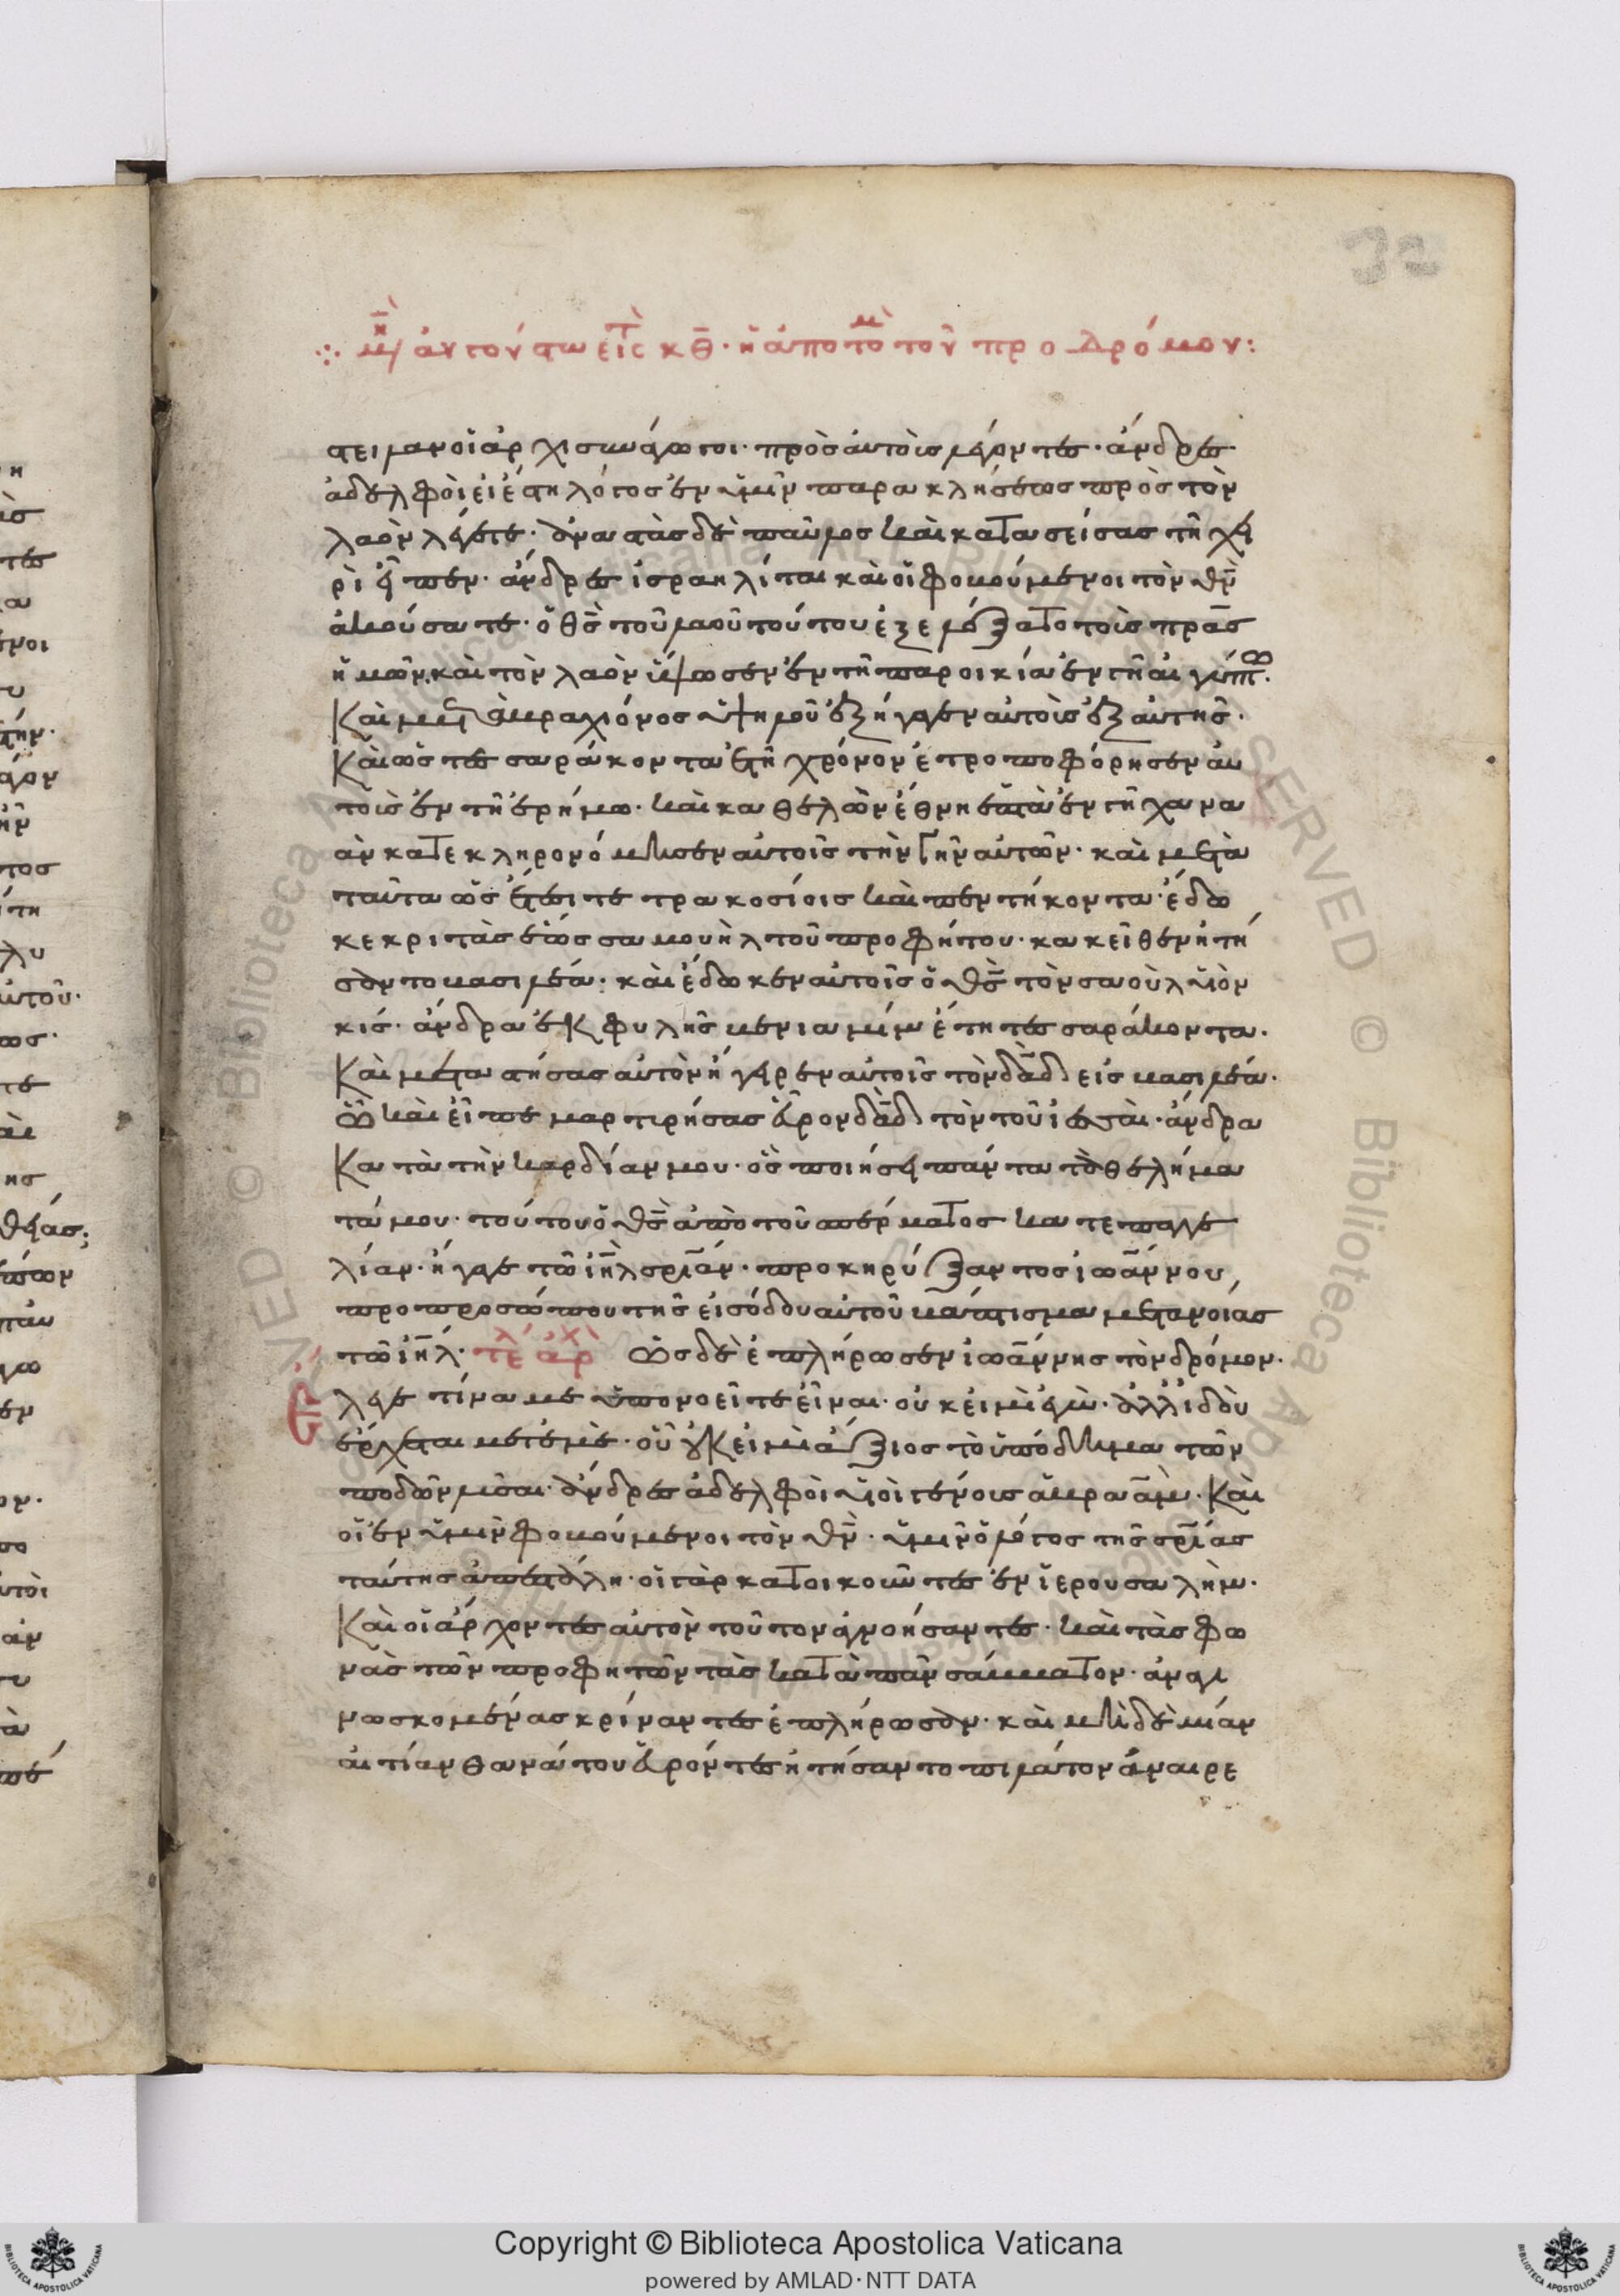 32
⁘ μη̅ αυτου τω εις κθ̅. ἡ ἀποτομὴ τοῦ προδρόμου:
στειλαν οἱ ἀρχισυνάγωγοι· πρὸς ἀυτοὺς λέγοντες· ἄνδρες
ἀδελφοὶ εἰ ἔστη λόγος ἐν ὑμῖν παρακλήσεως πρὸς τὸν
λαὸν λέγετε· ἀναστὰς δὲ παῦλος καὶ κατασείσας τῆ χει
ρὶ εἶπεν· ἄνδρες ἰσραηλίται καὶ οἱ φοβούμενοι τὸν θν̅
ἀκούσατε· ὁ θς̅ τοῦ λαοῦ τούτου ἐξελέξατο τοὺς πρα̅ς
ἡμῶν. καὶ τὸν λαὸν ὕψωσεν ἐν τῆ παροικία ἐν γῆ αἰγύπτω.
Καὶ μετὰ βραχιόνος ὑψηλοῦ ἐξήγαγεν αὐτοὺς ἐξ αὐτῆς.
Καὶ ὡς τεσσαράκονταετῆ χρόνον ἐτροποφόρησεν αὐ
τοὺς ἐν τῆ ἐρήμω· καὶ καθελὼν ἔθνη ἑπτὰ ἐν γῆ χανα
ὰν κατεκληρονόμησεν αὐτοῖς τὴν γῆν αὐτῶν· καὶ μετὰ
ταῦτα ὡς ἔτεσι τετρακοσίοις καὶ πεντήκοντα· ἔδω
κε κριτὰς ἕως σαμουὴλ τοῦ προφήτου· κακεῖθεν ἡτή
σαντο βασιλέα· καὶ ἔδωκεν αὐτοῖς ὁ θς̅ τὸν σαοὺλ υἱὸν
κις· ἄνδρα ἐκ φυλῆς βενιαμὶν ἔτη τεσσαράκοντα.
Καὶ μεταστήσας αὐτὸν ἤγειρεν αὐτοῖς τὸν δα̅δ εἰς βασιλέα.
ὧ καὶ εἶπε μαρτιρήσας εὗρον δα̅δ τὸν τοῦ ἰεσσαί· ἄνδρα
Κατὰ τὴν καρδίαν μου· ὃς ποιήσει πάντα τὰ θελήμα
τά μου· τούτου ὁ θς̅ ἀπὸ τοῦ σπέρματος κατ ἐπαγγε
λίαν· ἤγαγε τῶ ιη̅λ σρι̅αν· προκηρύξαντος ἰωα̅ννου
προ προσώπου τῆς εἰσόδου αὐτοῦ βάπτισμα μετανοίας
τῶ ιη̅λ· τέλ ἀρχ Ὡς δὲ ἐπλήρωσεν ἰωα̅ννης τὸν δρόμον.
λεγε τίνα με ὑπονοεῖτε εἶναι· οὐκ εἰμὶ ἐγώ· ἀλλ ἰδοὺ
ἔρχεται μετ ἐμὲ· οὗ οὐκ εἰμὶ ἄξιος τὸ ὑπόδημα τῶν
ποδῶν λῦσαι· ἄνδρες ἀδελφοὶ υἱοὶ γένους ἀβραα̅μ· Καὶ
οἱ ἐν ὑμῖν φοβούμενοι τὸν θν̅· ὑμῖν ὁ λόγος τῆς σρι̅ας
ταύτης ἀπεστάλη· οἱ γὰρ κατοικοῦντες ἐν ἱερουσαλὴμ.
Καὶ οἱ ἄρχοντες αὐτὸν τοῦτον ἀγνοήσαντες· καὶ τὰς φω
νὰς τῶν προφητῶν τὰς κατὰ πᾶν σάββατον· ἀναγι
νωσκομένας κρίναντες ἐπλήρωσαν· καὶ μηδὲ μίαν
αἰτίαν θανάτου εὑρόντες ἡτήσαντο πιλάτον ἀναιρε
Copyright © Biblioteca Apostolica Vaticana
powered by AMLAD·NTT DATA